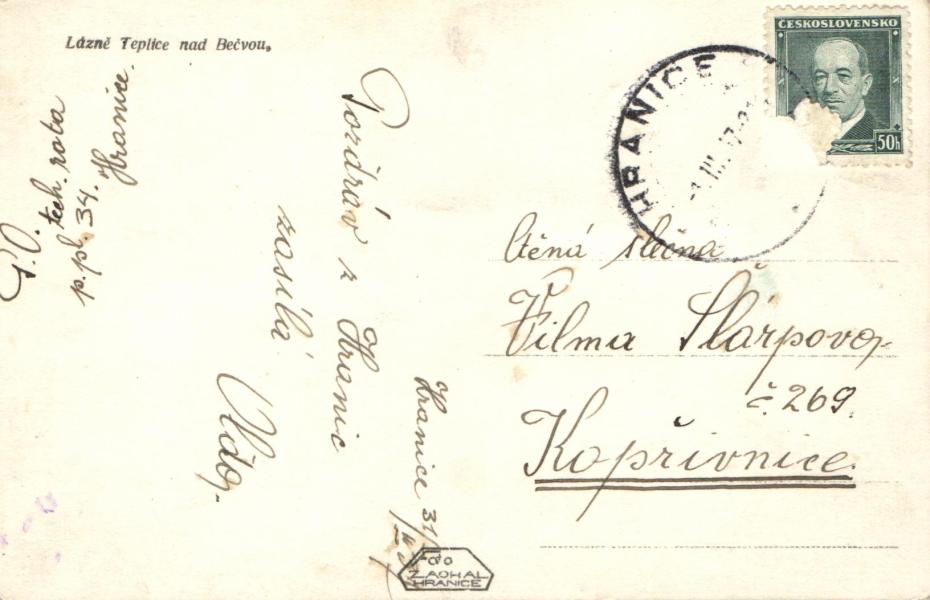 Lázně Teplice nad Bečvou.
tech. rota
p.pl. 34.
Hranice.
Pozdrav z Hranic
zasílá
Hranice 31/
ZAORAL
HRANICE
ČESKOSLOVENSKO
50h
HRANICE
III. 37
Ctěná slečna
Vilma
č. 269.
Kopřivnice.